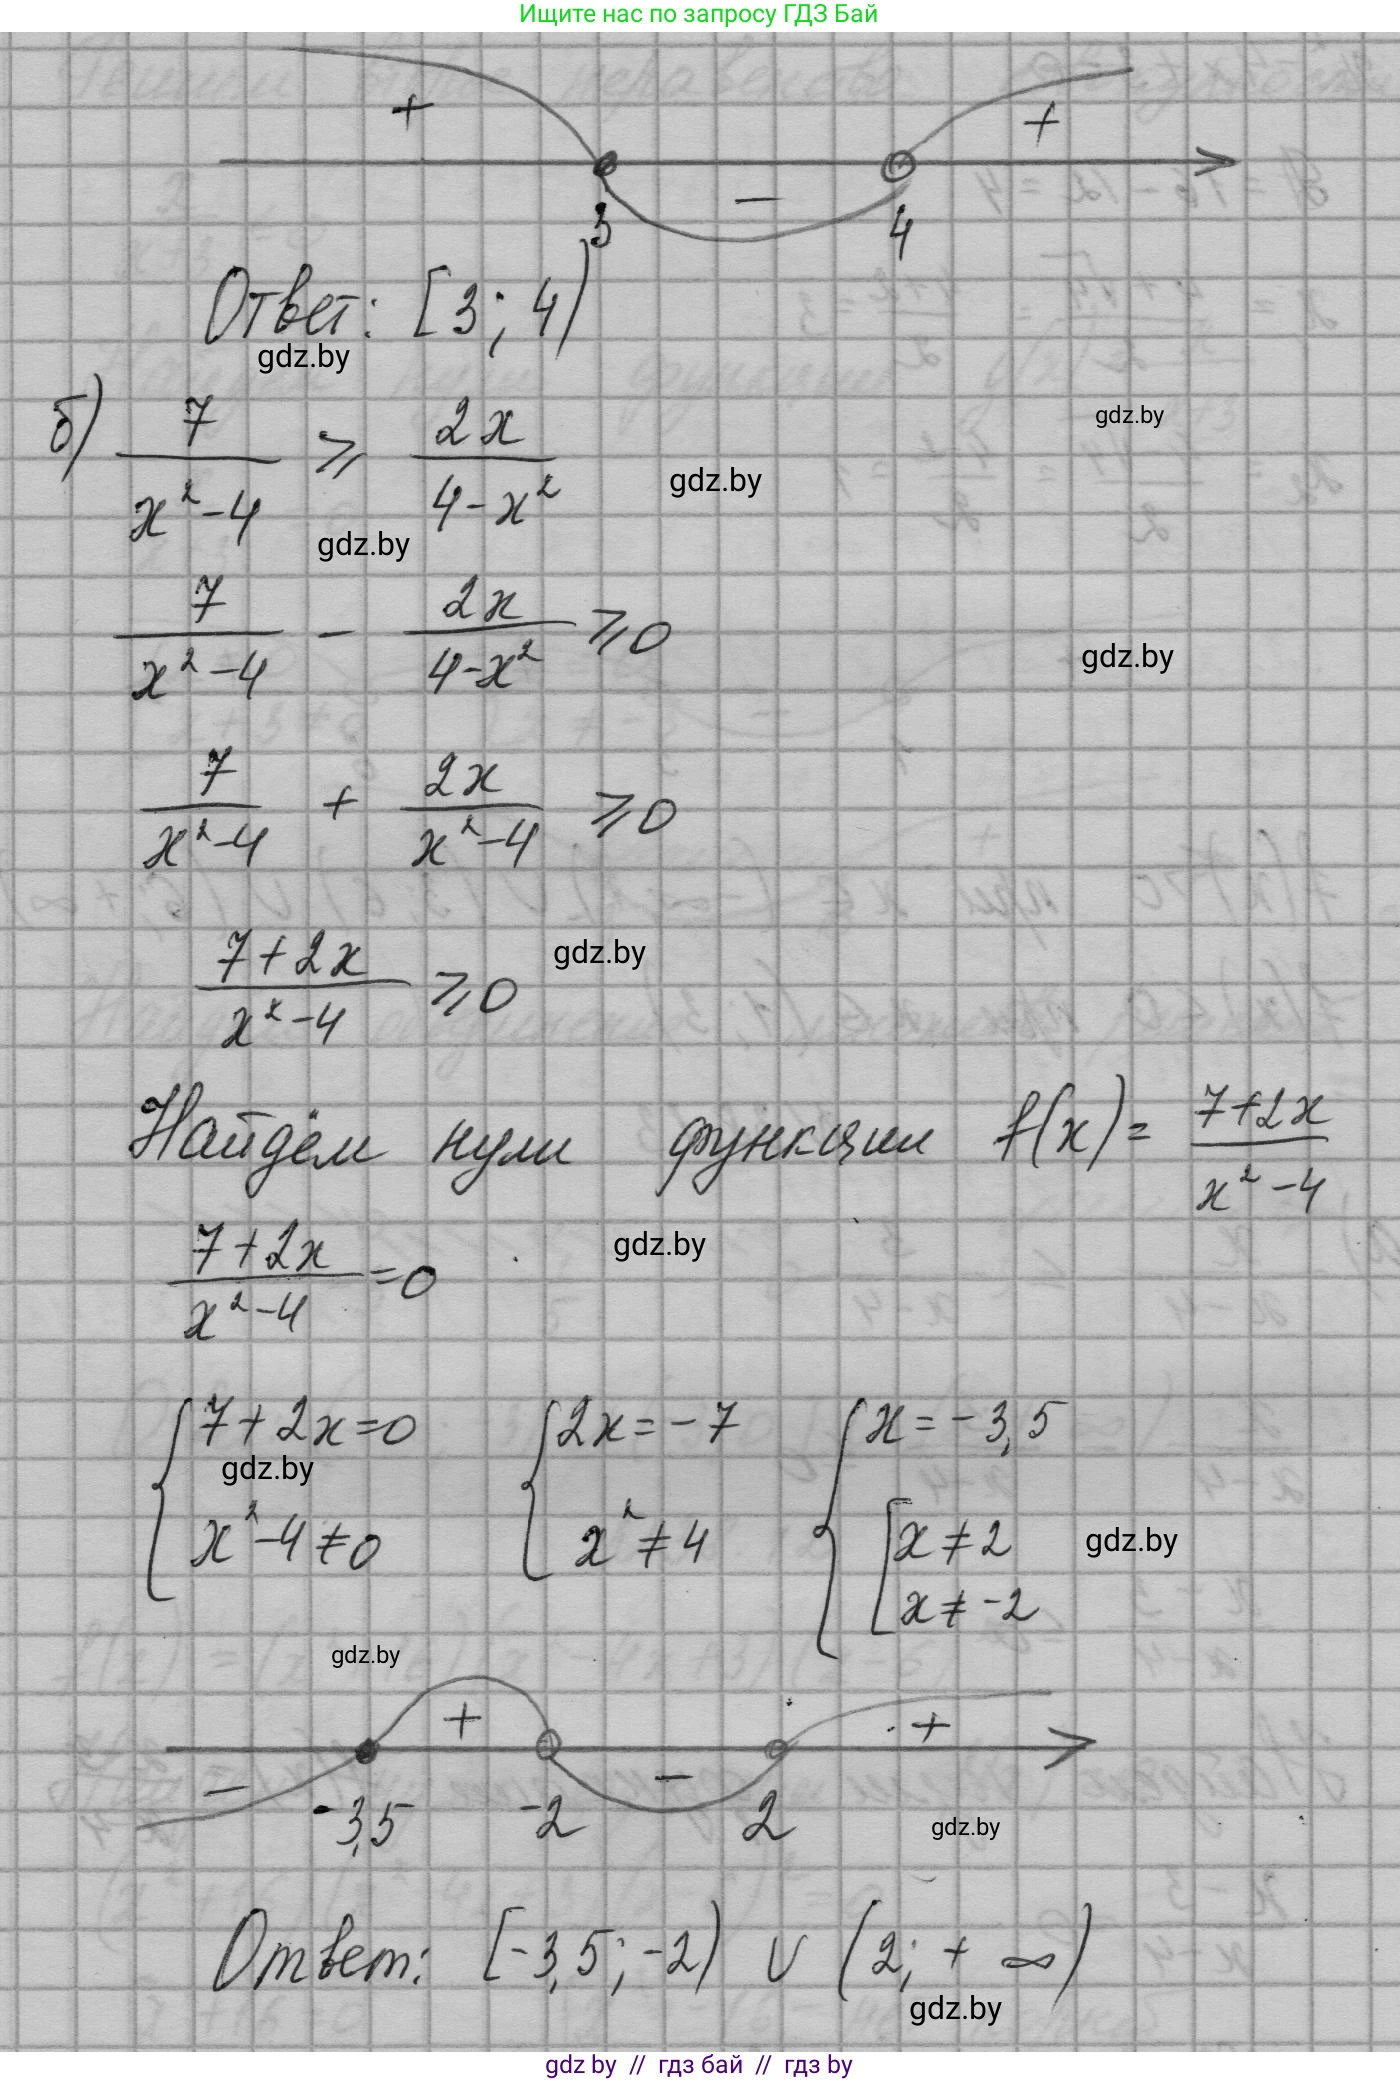 Ищите нас по запросу ГДЗ Бай
+ − +
3 4
Ответ: [3; 4)
gdz.by
б) 7/(x²−4) ⩾ 2x/(4−x²)
gdz.by
gdz.by
gdz.by
7/(x²−4) − 2x/(4−x²) ⩾ 0
gdz.by
7/(x²−4) + 2x/(x²−4) ⩾ 0
(7+2x)/(x²−4) ⩾ 0
gdz.by
Найдём нули функции f(x) = (7+2x)/(x²−4)
(7+2x)/(x²−4) = 0
gdz.by
{ 7+2x=0 { 2x=−7 { x=−3,5
gdz.by
x²−4≠0 x²≠4 [ x≠2
gdz.by
x≠−2
gdz.by
− + − +
-3,5 -2 2
gdz.by
Ответ: [-3,5; -2) ∪ (2; +∞)
gdz.by
gdz by // гдз бай // гдз by